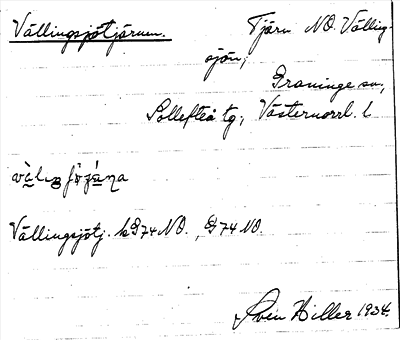 Vällingsjötjärnen. Tjärn NO. Välling-
sjön,
Graninge sn,
Sollefteå tg, Västernorrl. l
Vällingsjötj. kG74NO., G74NO.
Sven Hiller 1934.